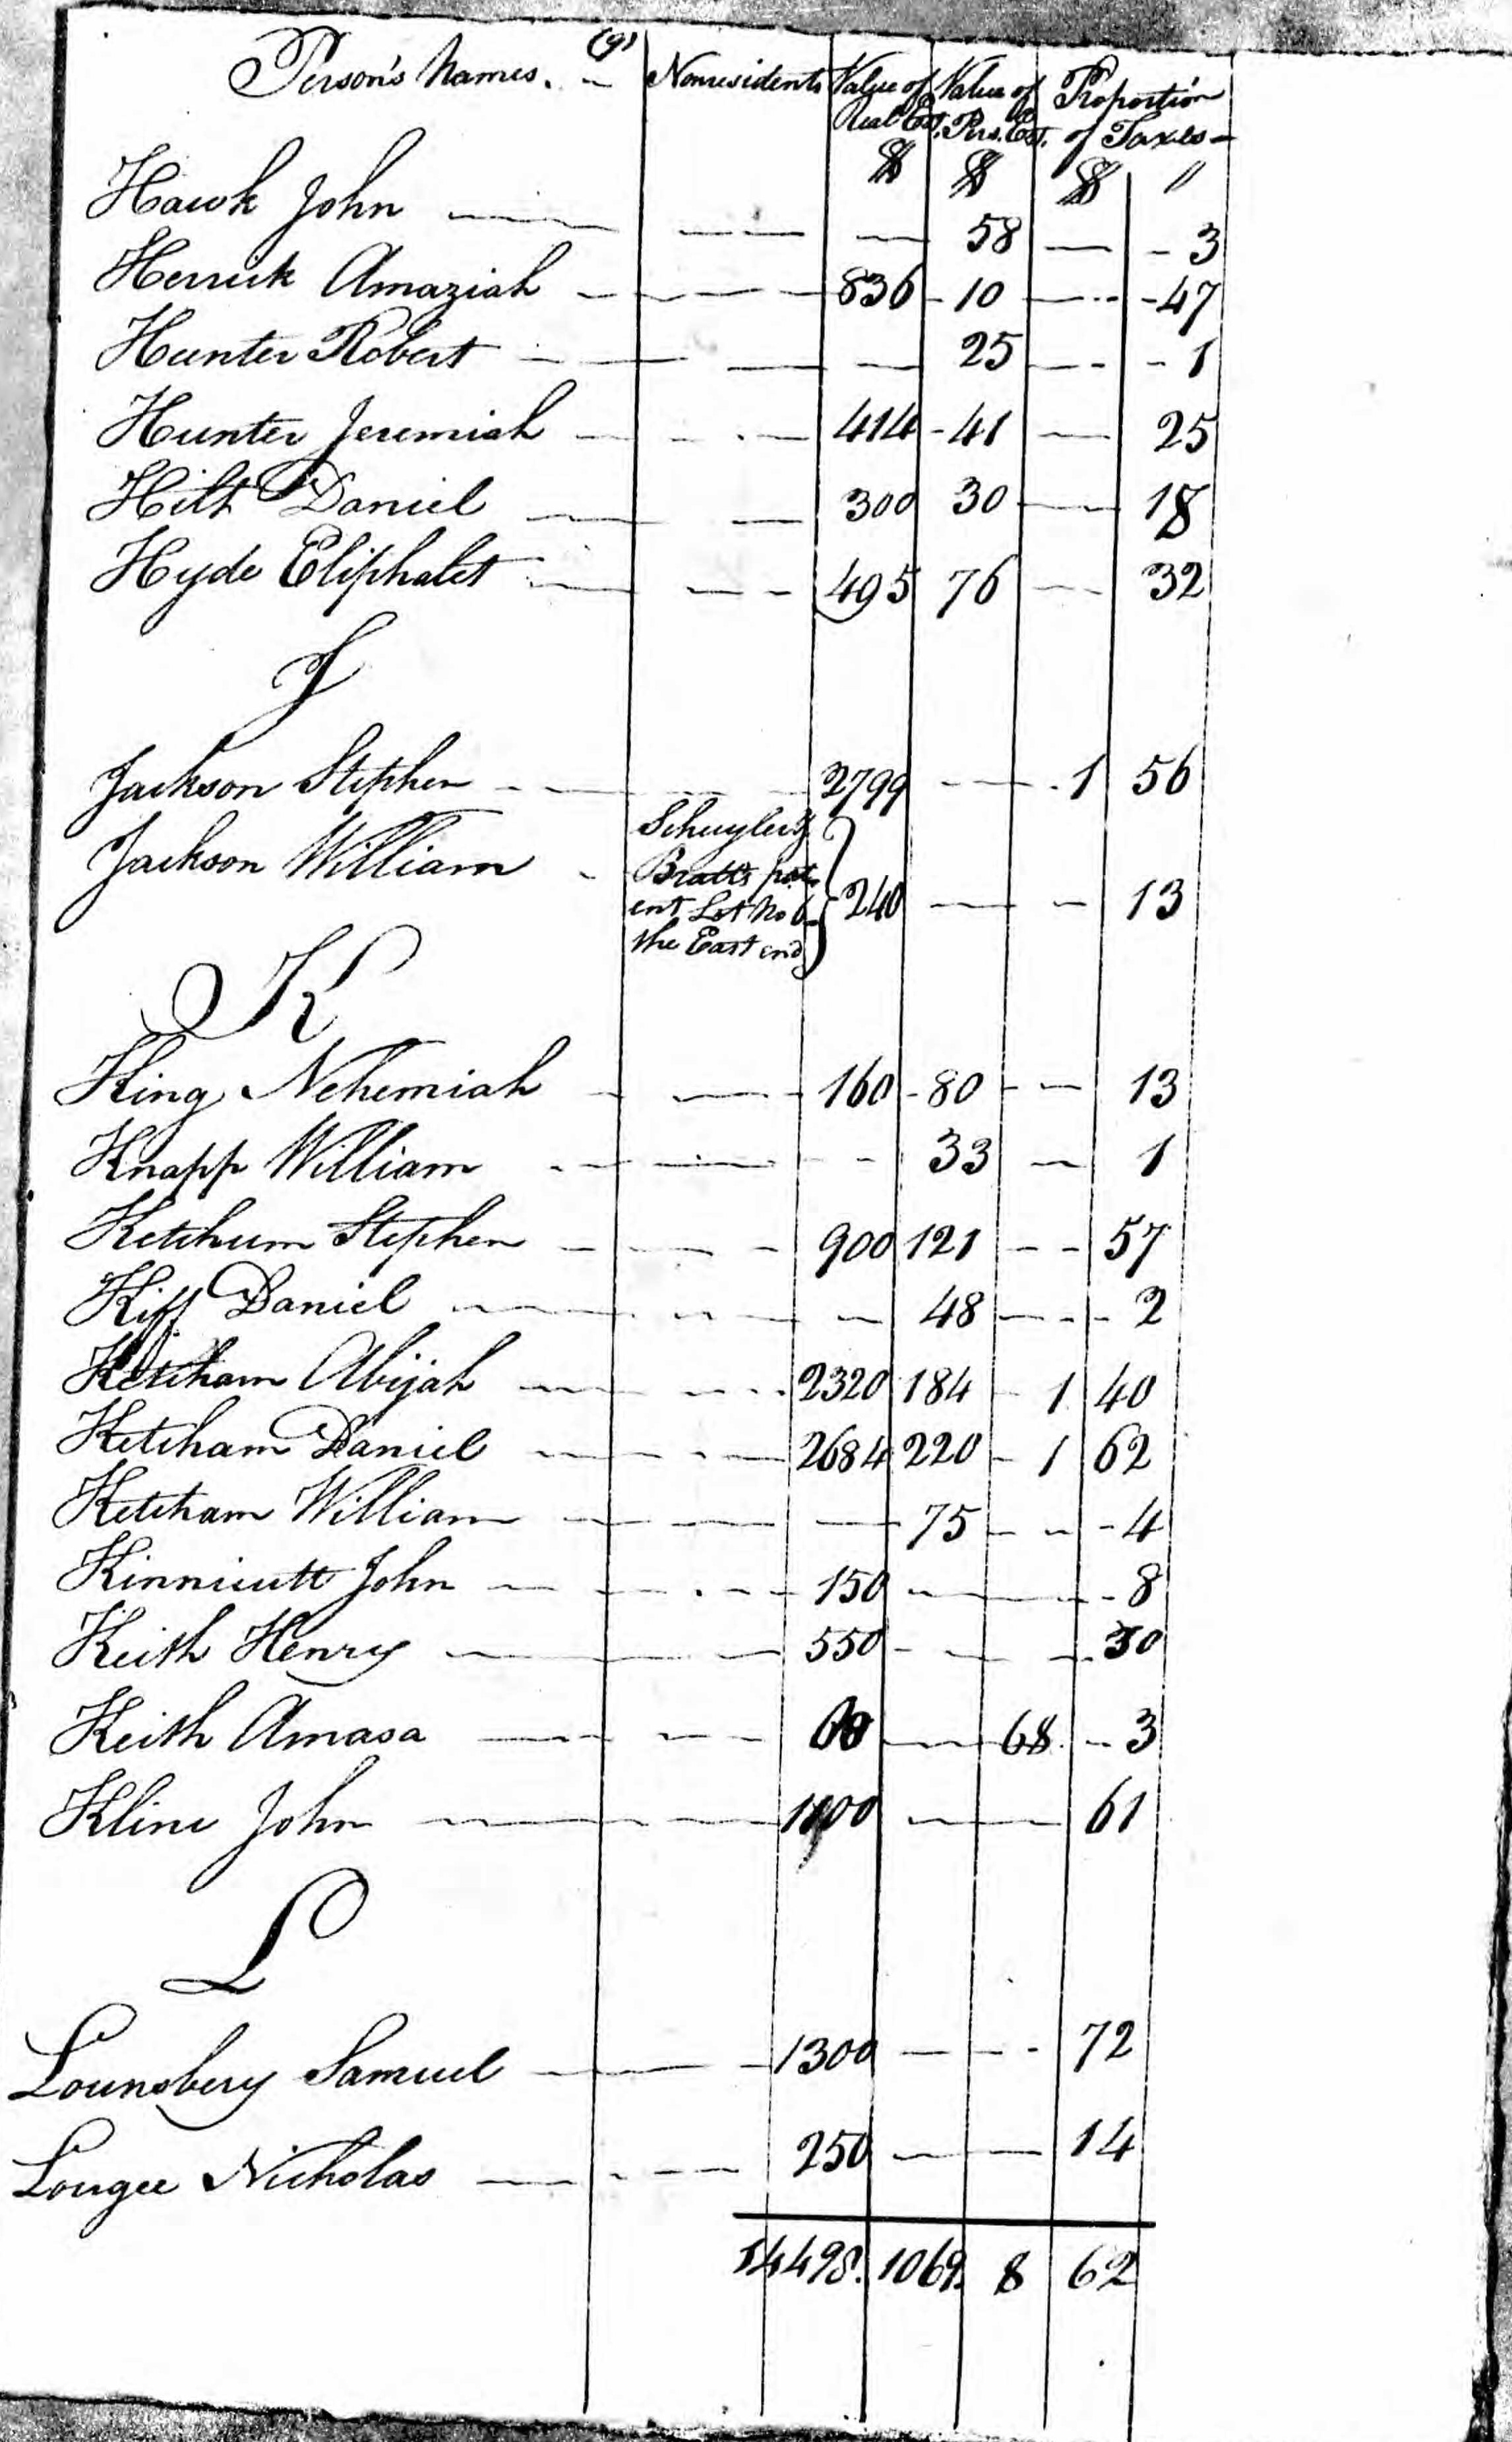 (9)
Person's Names. Nonresidents Value of Real Est. Value of Pers. Est. Proportion of Taxes
$ $ $ "
Hawk John — — — 58 — 3
Herrick Amaziah — — 836 10 — 47
Hunter Robert — — — 25 — 1
Hunter Jeremiah — — 414 41 — 25
Hilt Daniel — — 300 30 — 18
Hyde Eliphalet — — 495 76 — 32
J
Jackson Stephen — — 2799 — 1 56
Jackson William - Schuyler &
Bratt's pat-
ent Lot No 6 } 240 — — 13
the East end
K
King Nehemiah — — 160 80 — 13
Knapp William — — — 33 — 1
Ketchum Stephen — — 900 121 — 57
Kiff Daniel — — — 48 — 2
Ketcham Abijah — — 2320 184 1 40
Ketcham Daniel — — 2684 220 1 62
Ketcham William — — — 75 — 4
Kinnicutt John — — 150 — — 8
Keith Henry — — 550 — — 30
Keith Amasa — — — 68 3
Kline John — — 1100 — — 61
L
Lounsbery Samuel — — 1300 — — 72
Lougee Nicholas — — 250 — — 14
14498. 1069. 8 62